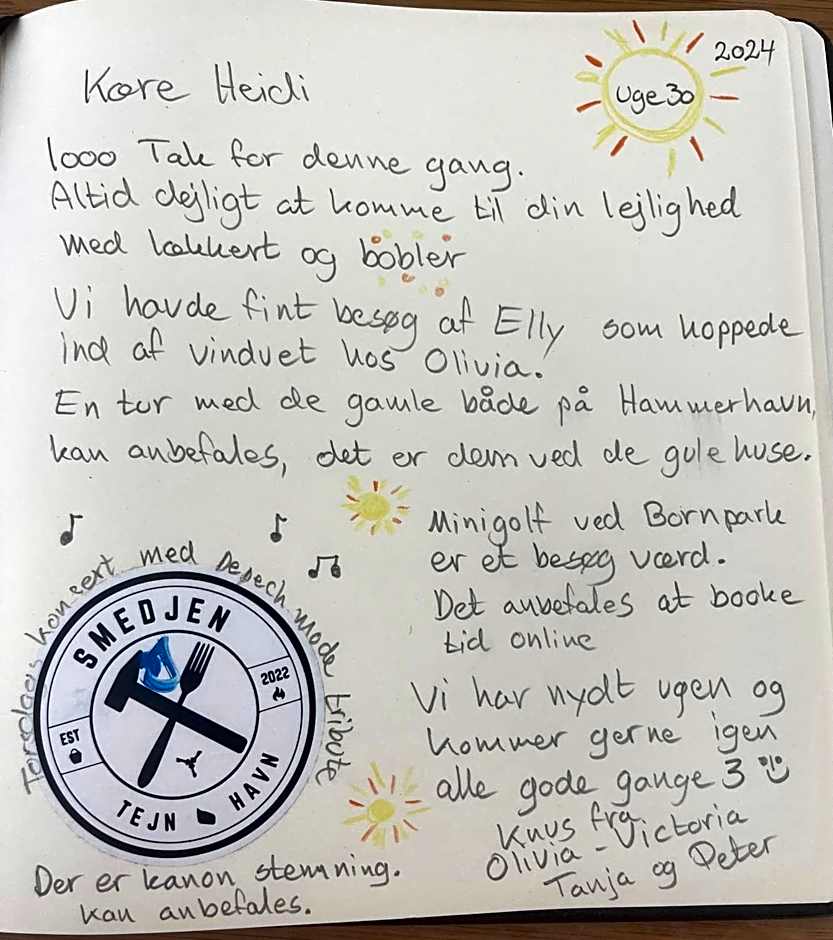 2024
Uge 30
Kære Heidi
1000 Tak for denne gang.
Altid dejligt at komme til din lejlighed
med lækkert og bobler
Vi havde fint besøg af Elly som hoppede
ind af vinduet hos Olivia.
En tur med de gamle både på Hammerhavn,
kan anbefales, det er dem ved de gule huse.
Minigolf ved Bornpark
er et besøg værd.
Det anbefales at booke
tid online
Torsdags konsert med Depech mode tribute
SMEDJEN
2022
EST
TEJN HAVN
Der er kanon stemning.
kan anbefales.
Vi har nydt ugen og
kommer gerne igen
alle gode gange 3
Knus fra
Olivia - Victoria
Tanja og Peter